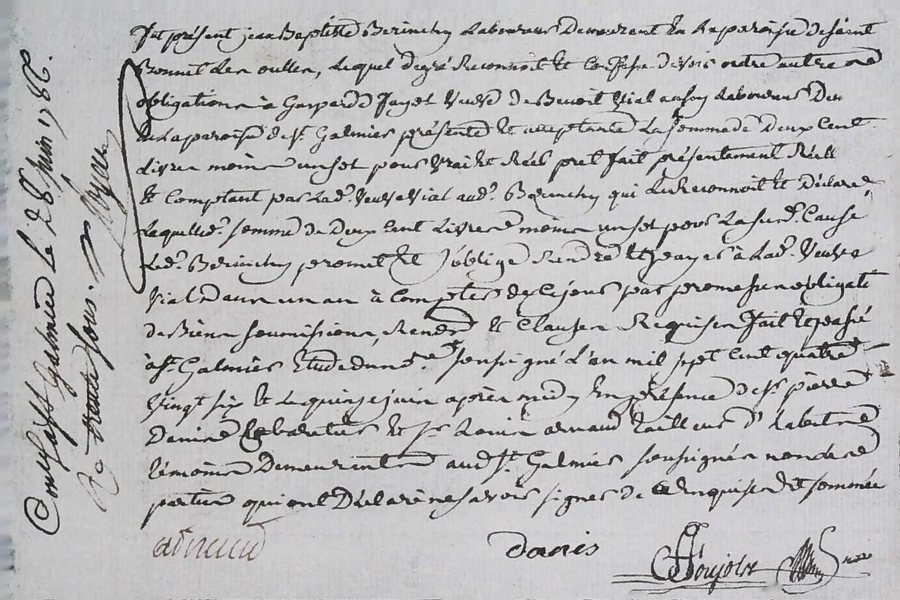 fut présent jean Baptiste Berinchy Laboureur Demeurant En La paroisse de saint
Bonnet Les oulles, Lequel degré Reconnoit Et Confesse devoir outre autres
obligations à Gasparde fayet Veuve de Benoit Vial au son Laboureur De
de La paroisse de St. Galmier présente Et acceptante La somme de Deux Cent
Livres moins un sol pour Vrai Et Réel pret fait présentement Réell
Et Comptant par Lad. Veuve Vial aud. Berinchy qui Le Reconnoit Et Déclare,
Laquelle d. somme de Deux Cent Livres moins un sol pour La sus d. Cause
Led. Berinchy promet Et s'oblige Rendre Et payer à Lad. Veuve
Vial dans un an à Compter de Ce jour par promesse obligat
de Biens soumissions, Renons Et Clauses Requises fait Et passé
à St. Galmier Etude du ne. soussigné L'an mil sept Cent quatre
Vingt six Et Le quinze juin après midy En présence de Sr. pierre
Danis Cabaretier Et Sr. Louis arnaud tailleur d'habits
témoins Demeurants aud. St. Galmier soussignés non les
parties qui ont Déclaré ne savoir signer de Ce Enquises Et sommées
arnaud
danis
Ponjolse
Conlé à St Galmier le 28 juin 1786.
R. trente sous.